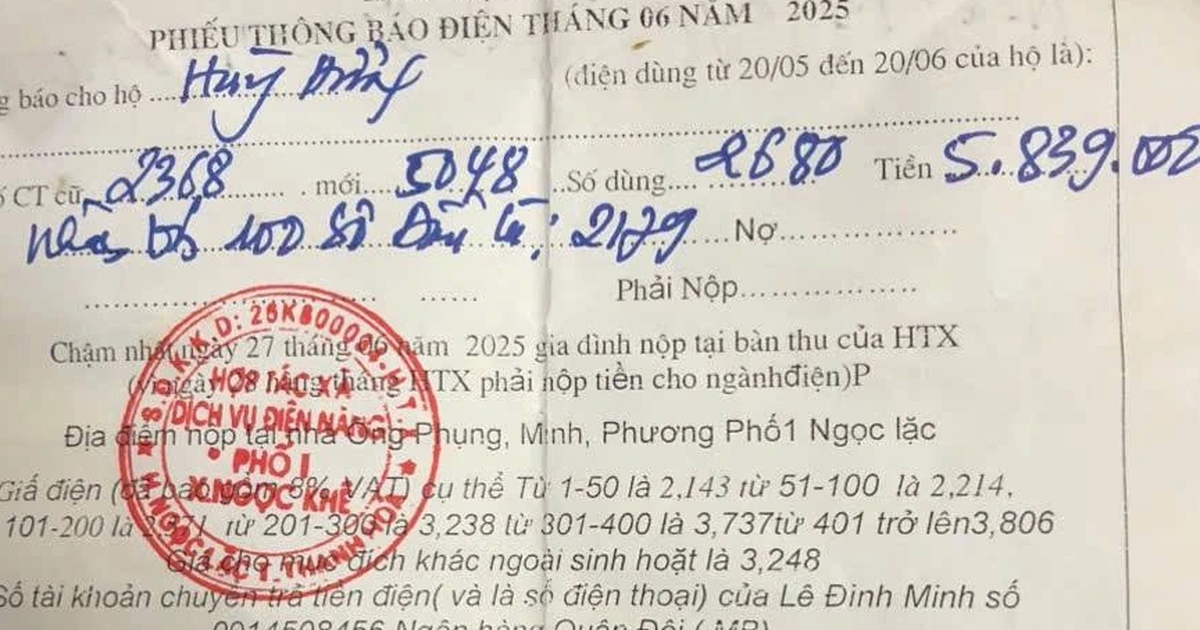 PHIẾU THÔNG BÁO ĐIỆN THÁNG 06 NĂM 2025
g báo cho hộ .... Huỳ (điện dùng từ 20/05 đến 20/06 của hộ là):
CT cũ 2368 ....... mới.... 5048 ..Số dùng.... 2680 Tiền 5.839.000
100 số 2129 ... Nợ..................
Phải Nộp..................
Chậm nhất ngày 27 tháng 06 năm 2025 gia đình nộp tại bàn thu của HTX
(Vì ngày 08 hàng tháng HTX phải nộp tiền cho ngànhđiện)P
Địa điểm nộp tại nhà Ông Phụng, Minh, Phương Phố1 Ngọc lặc
Giấ điện (đã bao gồm 8% VAT) cụ thể Từ 1-50 là 2,143 từ 51-100 là 2,214,
101-200 là 2,571, từ 201-300 là 3,238 từ 301-400 là 3,737từ 401 trở lên3,806
Giá cho mục đích khác ngoài sinh hoạt là 3,248
Số tài khoản chuyển trả tiền điện( và là số điện thoại) của Lê Đinh Minh số
Ngân hàng Quân Đội ( MB)
HỢP TÁC XÃ
DỊCH VỤ ĐIỆN NĂNG
PHỐ I
X.NGỌC KHÊ